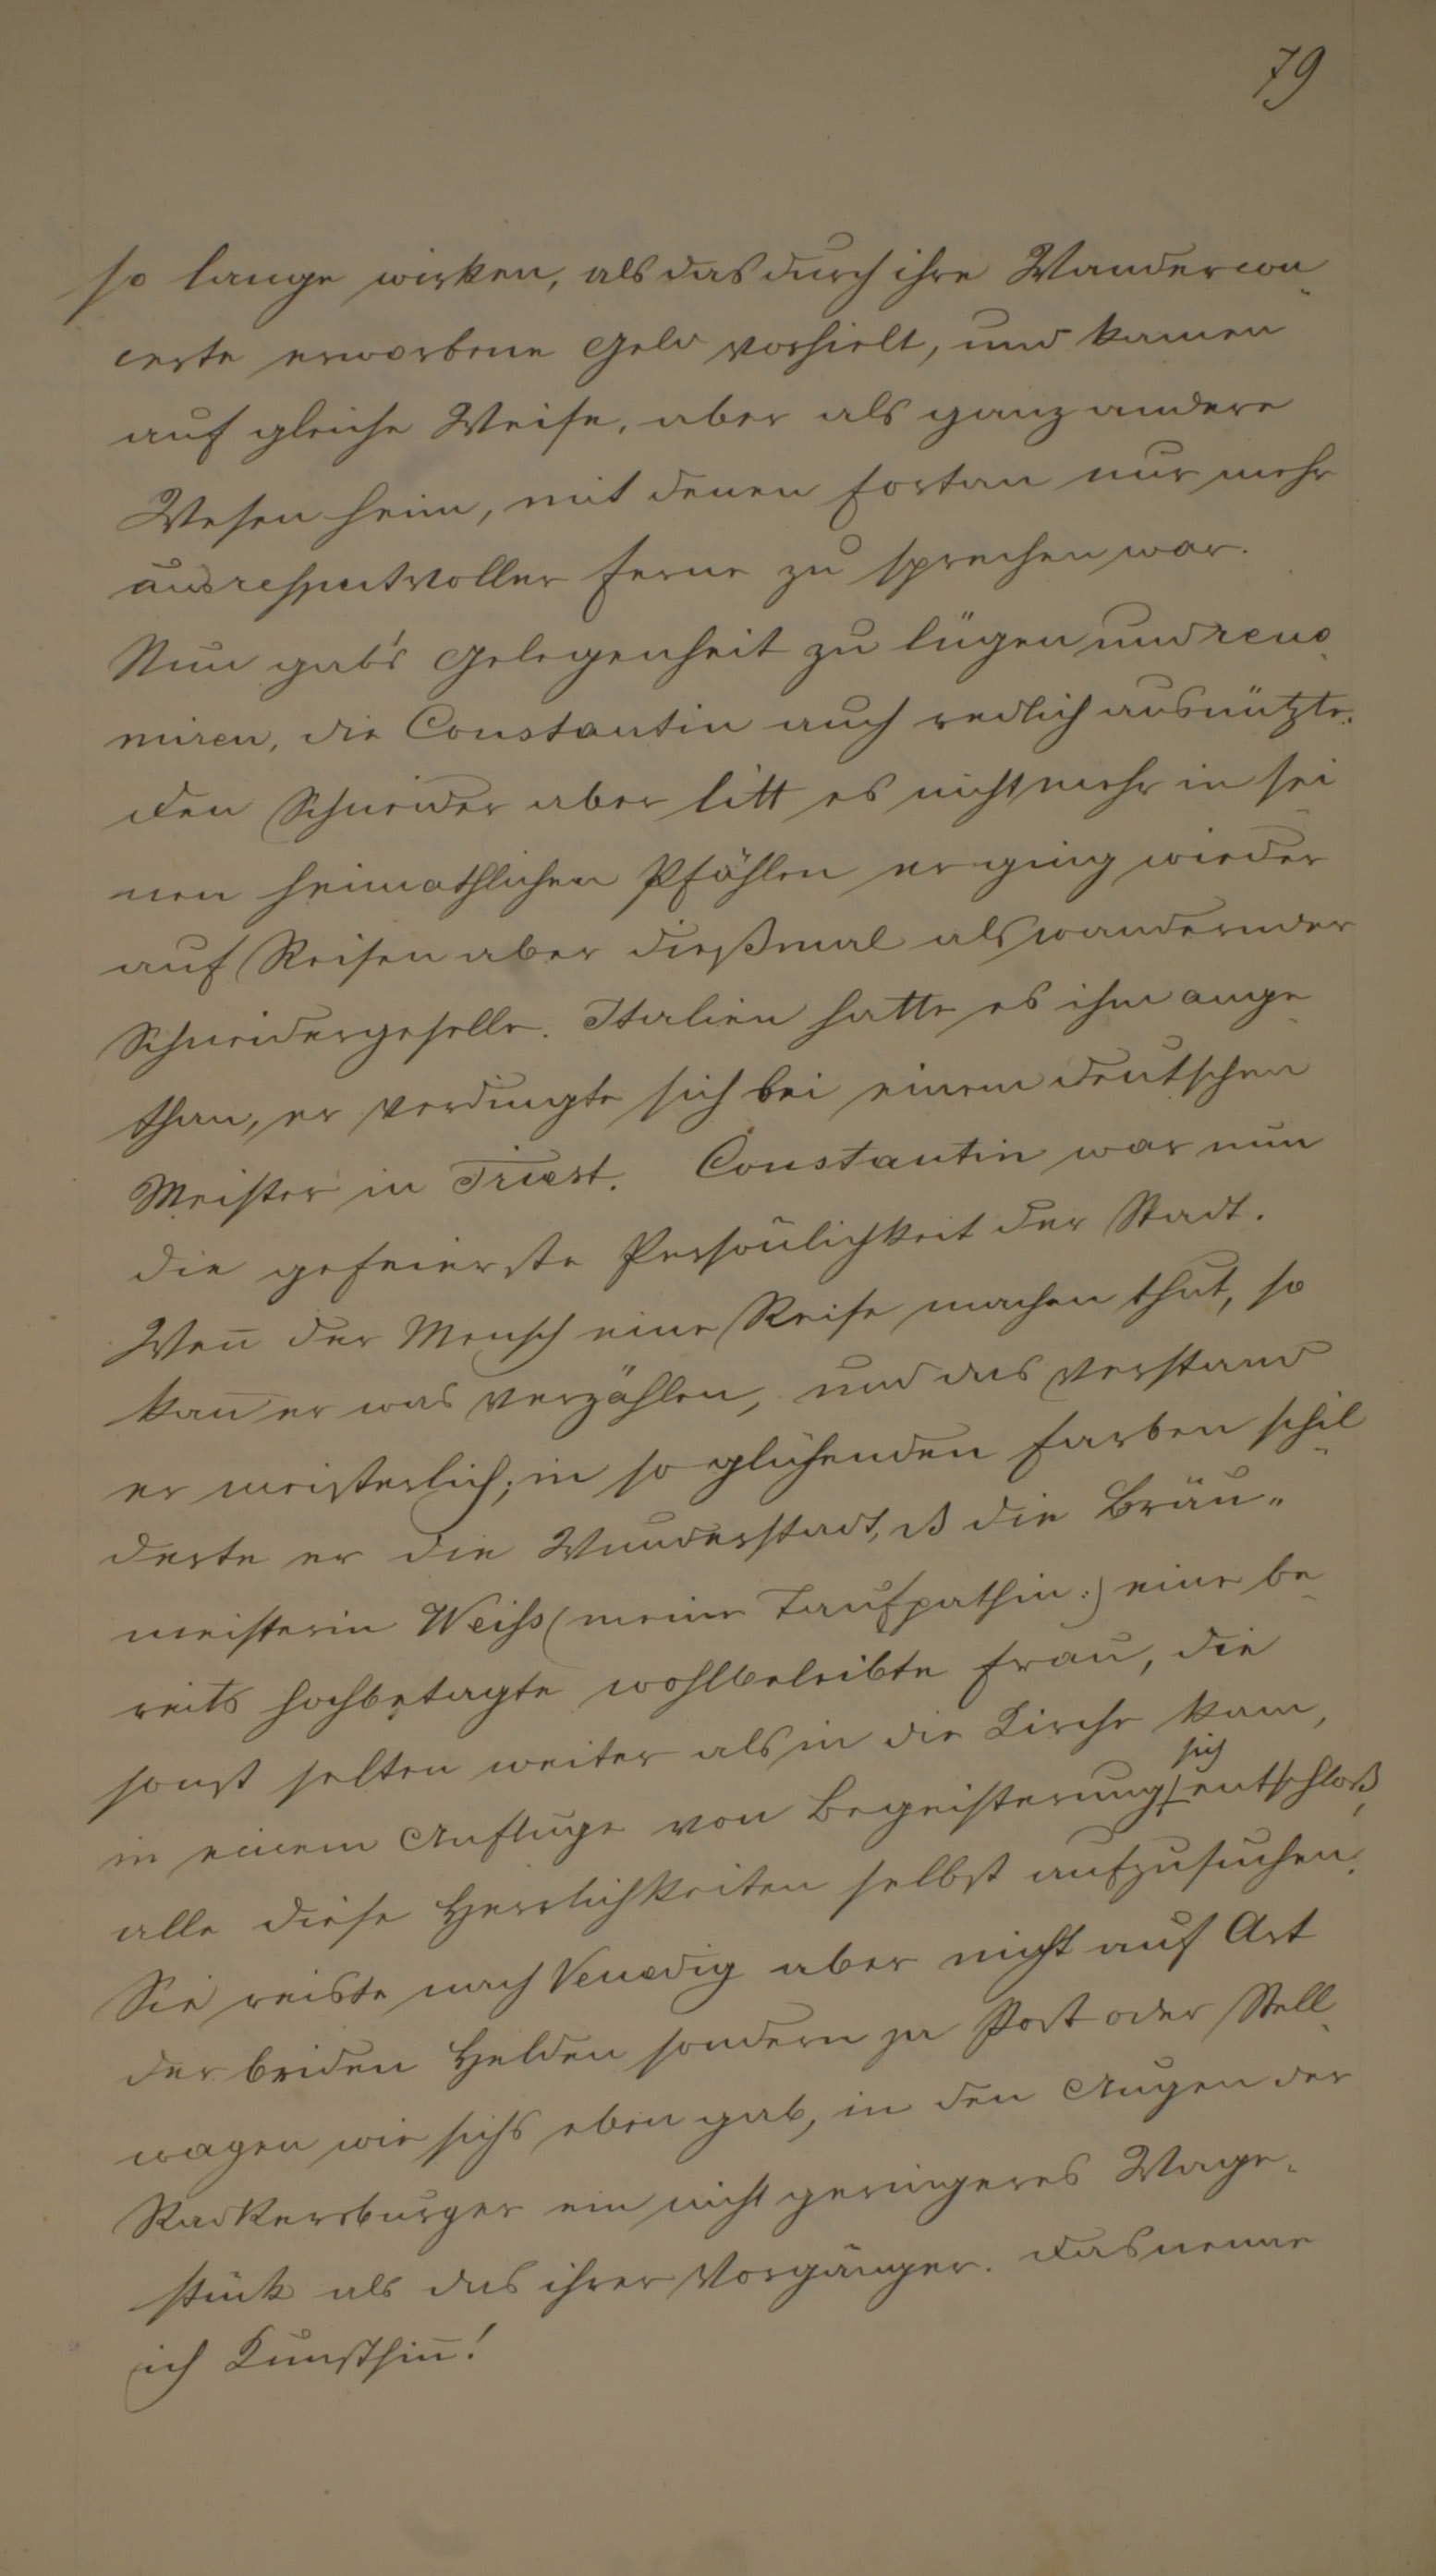 79
so lange wirken, als das durch ihre Wandercon-
certe erworbene Geld vorhielt, und kamen
auf gleiche Weise, aber als ganz andere
Wesen heim, mit denen fortan nur mehr
aus respectvoller Ferne zu sprechen war.
Nun gab's Gelegenheit zu lügen und reno-
miren, die Constantin auch redlich ausnützte.
Den Schneider aber litt es nicht mehr in sei
nen heimathlichen Pfählen er ging wieder
auf Reisen aber dießmal als wandernder
Schneidergeselle. Italien hatte es ihm ange-
than, er verdingte sich bei einem deutschen
Meister in Triest. Constantin war nun
die gefeierste Persönlichkeit der Stadt.
Wen̅ der Mensch eine Reise machen thut, so
kan̅ er was verzählen, und das verstand
er meisterlich; in so glühenden Farben schil-
derte er die Wunderstadt, ß die Bräu-
meisterin Weiss (meine Taufpathin:) eine be-
reits hochbetagte wohlbeleibte Frau, die
sonst selten weiter als in die Kirche kam,
sich
in einem Anfluge von Begeisterung entschloß,
alle diese Herrlichkeiten selbst aufzusuchen.
Sie reiste nach Venedig aber nicht auf Art
der beiden Helden sondern per Post oder Stell-
wagen wie sichs eben gab, in den Augen der
Radkersburger ein nicht geringeres Wage-
stück als das ihrer Vorgänger. Das nenne
ich Kunstsin̅!